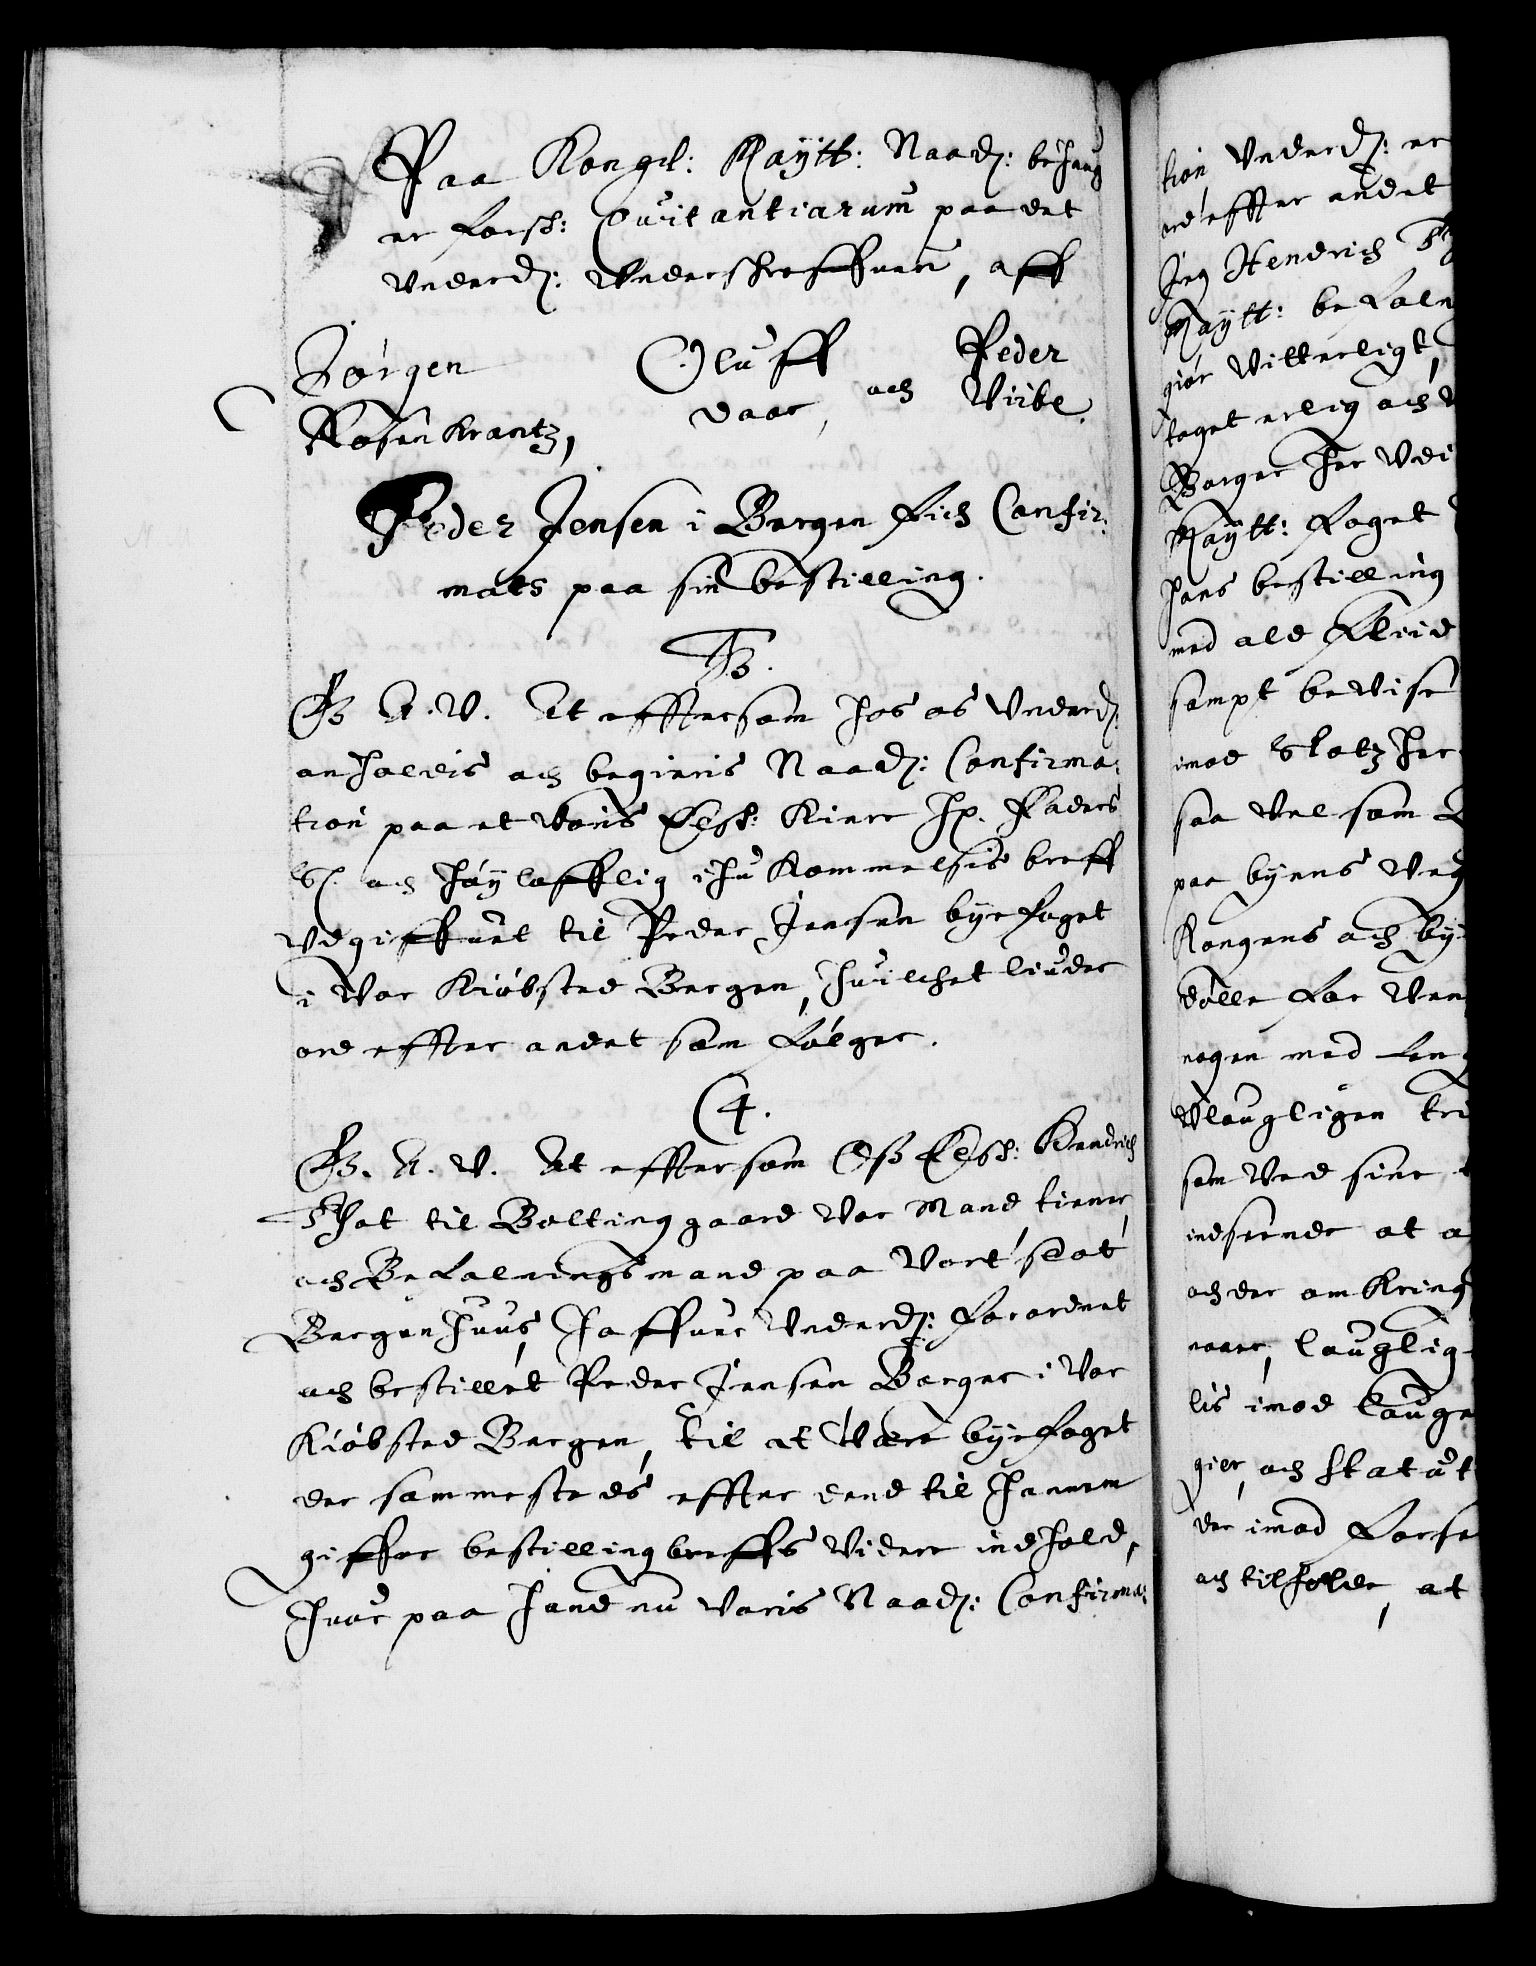 Paa Kongl: Maÿtt: Naad: behaug
er forsk: Quitantiarum paa det
Underd: Underskreffuen, aff
Jørgen Oluff Peder
Rosenkrantz, daae, och Viibe.
Peder Jensen i Bergen fich Confir:
mats paa sin bestilling.
F3.
G A. V. At efftersom hos os Underd:
anholdis och begieris Naad: Confirma:
tion paa et Voris Elsk: Kiere Hr. Faders
S. och høÿlofflig ihukommelsis breff
Udgiffuet til Peder Jensen byefoget
i Vor Kiøbsted Bergen, huilchet liuder
ord effter andet som følger.
C4.
G. A. V. At efftersom Oß Elsk: Hendrich
Thot til Boltinggaard Vor Mand tiener,
och Befalningsmand paa Vort slot
Bergenhuus, haffuer Underd: forordnet
och bestillet Peder Jensen Borger i Vor
Kiøbsted Bergen, til at Være byefoget
der sammesteds effter dend til hannem
giffne bestilling breffs Videre indhold,
huor paa hand nu Voris Naad: Confirma:
tion Underd: er
ord effter andet
Jeg Hendrich
Maÿtt: befaln
giør Vitterligt,
taget erlig och
Borger her Udi
Maÿtt: foget
hans bestilling
med ald fliid
sampt bevise
imod Slotzher
saa Vel som
paa byens Veg
Kongens och bÿ
dølle for Ven
nogen med
Ulougligen tri
som Ved sine
indseende at
och der omkring
naar, louglig
lis imod loug
gier, och Statut
der imod forse
och tilholde, at